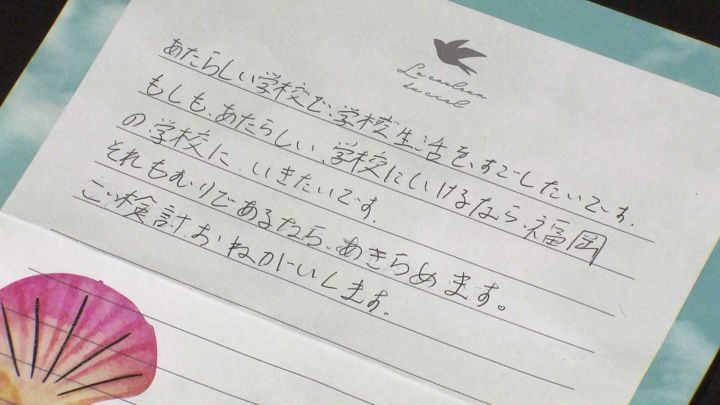 La couleur
du ciel
あたらしい学校で、学校生活を、すごしたいです。
もしも、あたらしい、学校にいけるなら、福岡
の学校に、いきたいです。
それもむりであるなら、あきらめます。
ごい検討おねがいします。